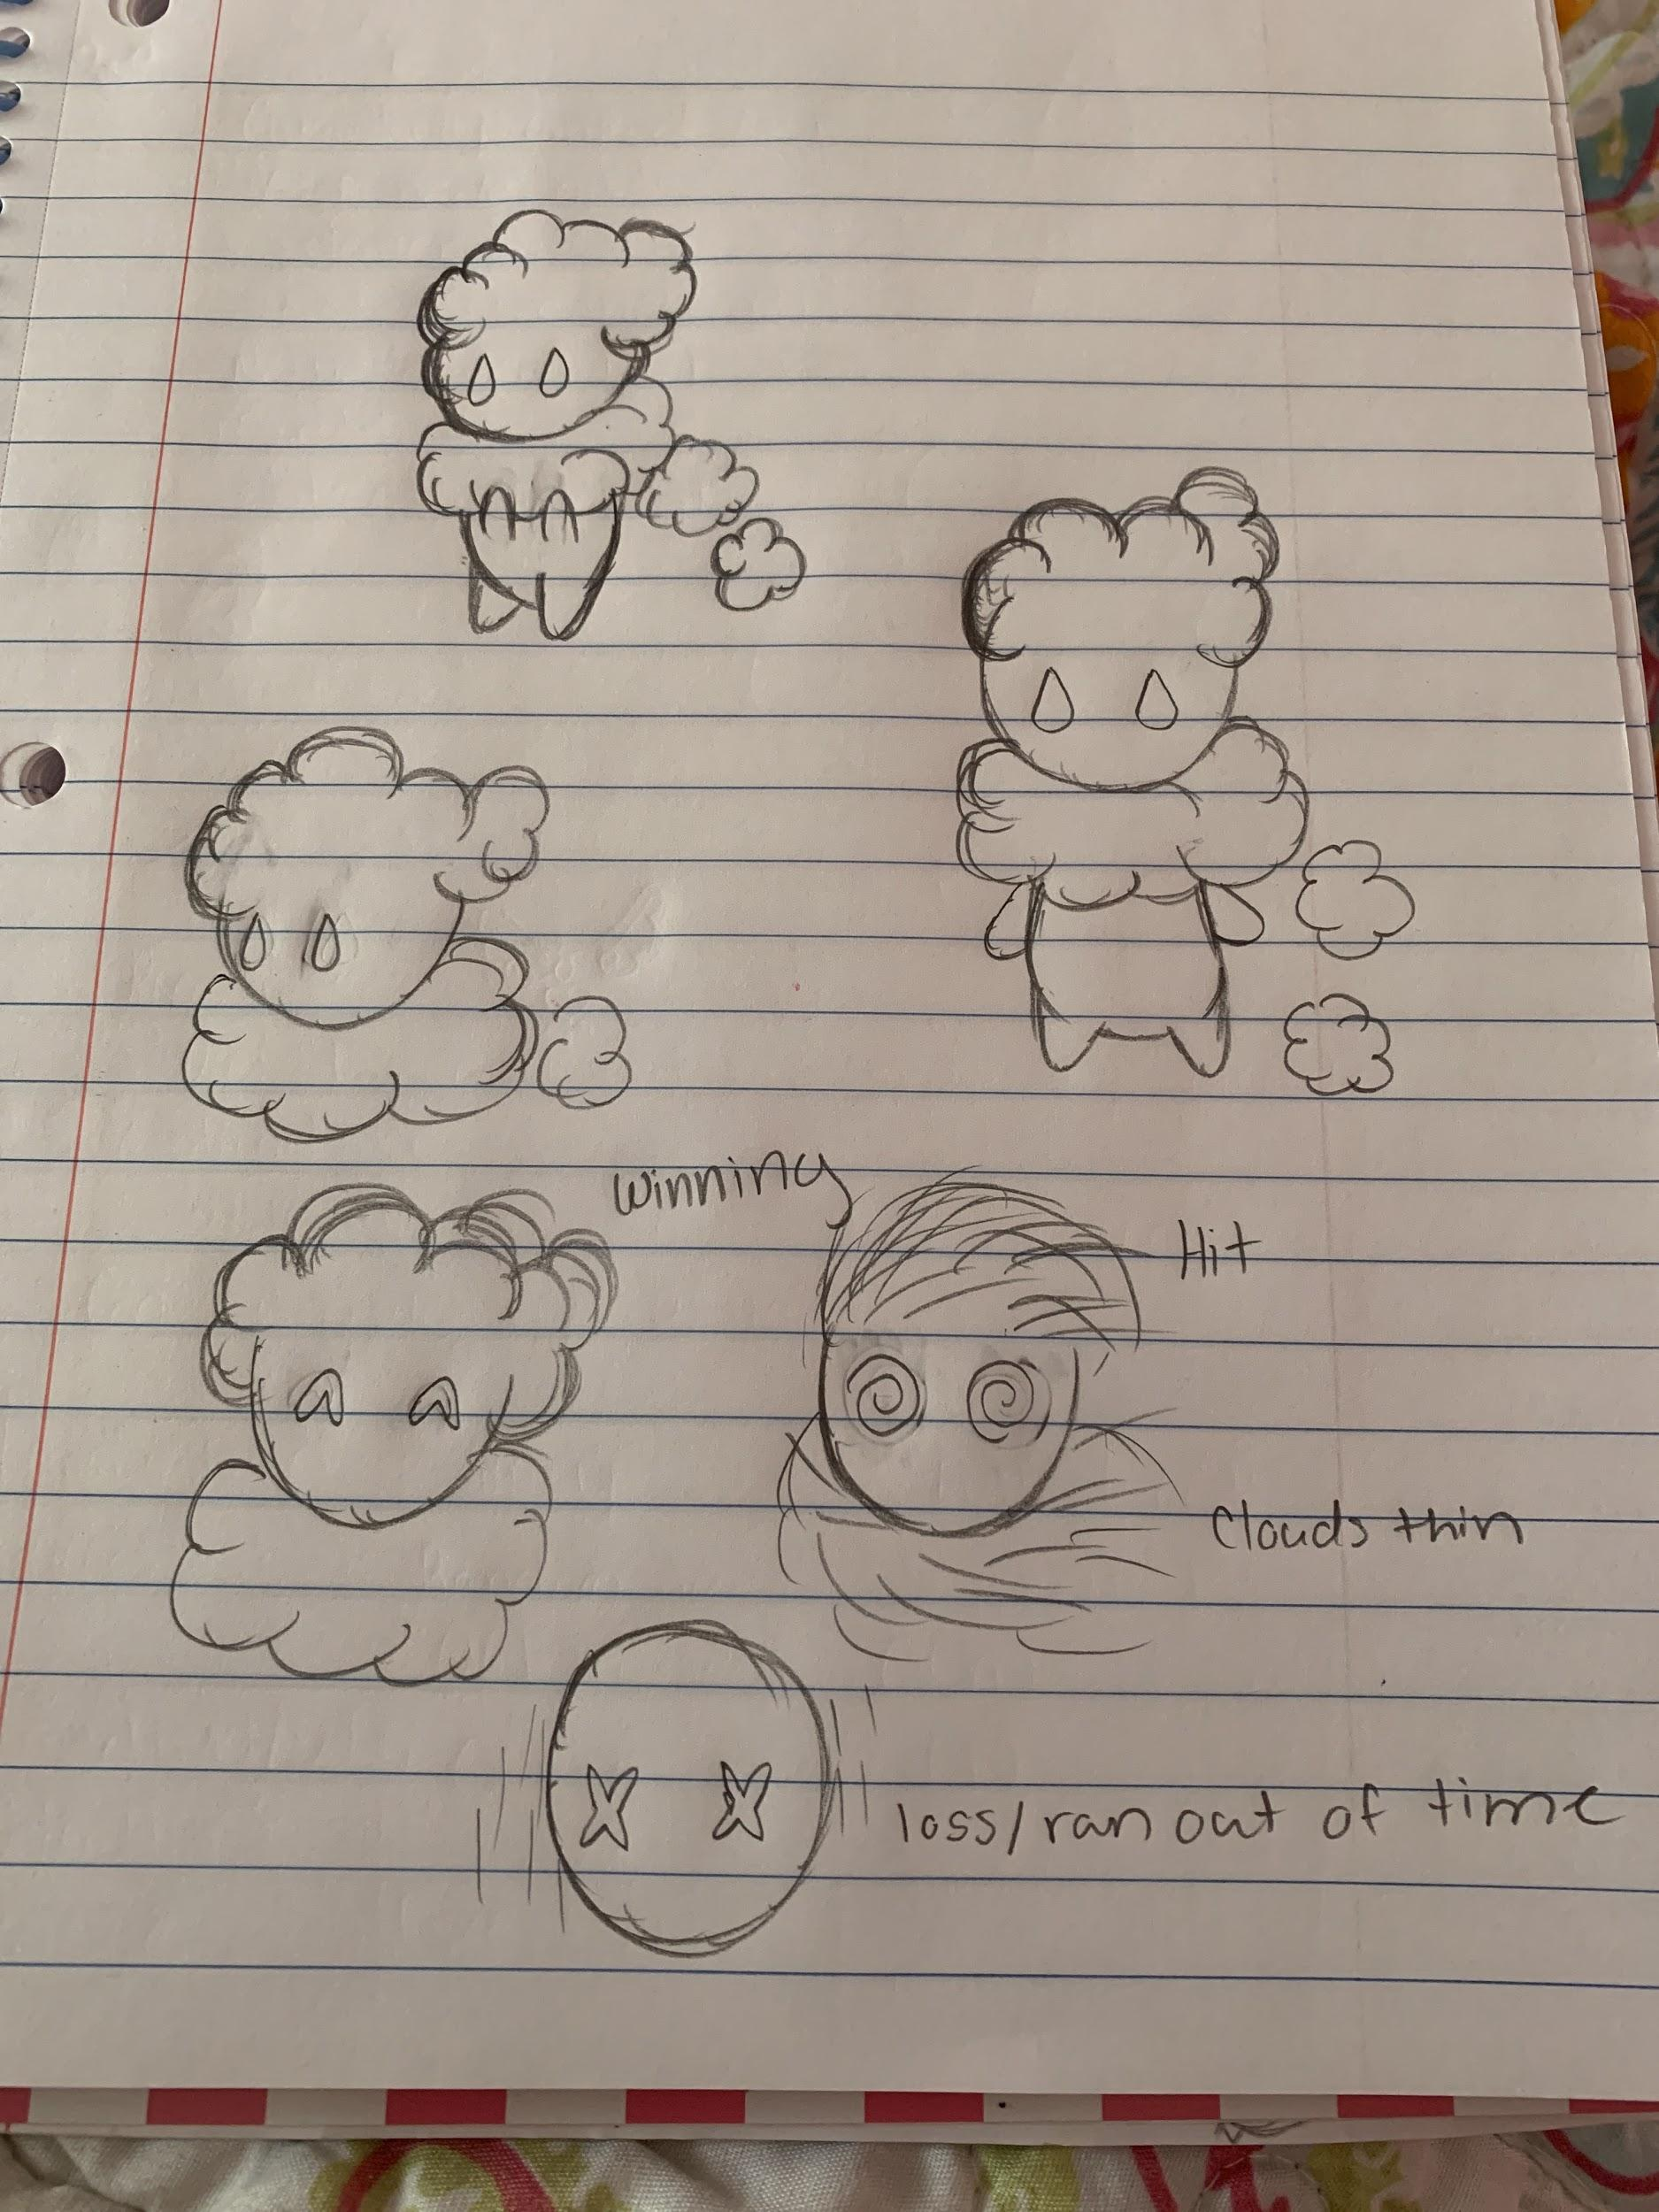 winning
Hit
Clouds thin
loss/ran out of time